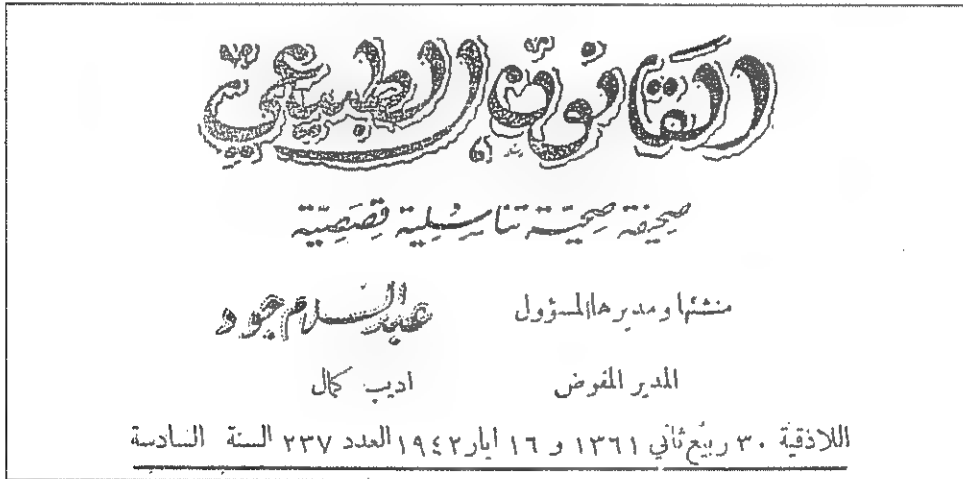 القانون الطبيعي
صحيفة صحية تناسلية قصصية
منشئها ومديرها المسؤول عبد السلام جود
المدير المفوض اديب كمال
اللاذقية ٣٠ ربيع ثاني ١٣٦١ و ١٦ ايار ١٩٤٢ العدد ٢٣٧ السنة السادسة